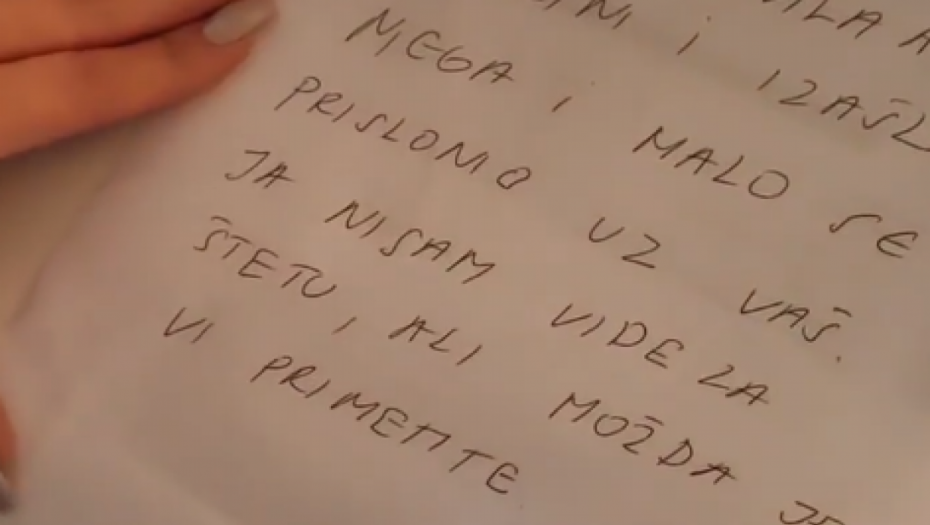 I IZAŠL
NJEGA I MALO SE
PRISLONIO UZ VAŠ.
JA NISAM VIDELA
ŠTETU, ALI MOŽDA JE
VI PRIMETITE